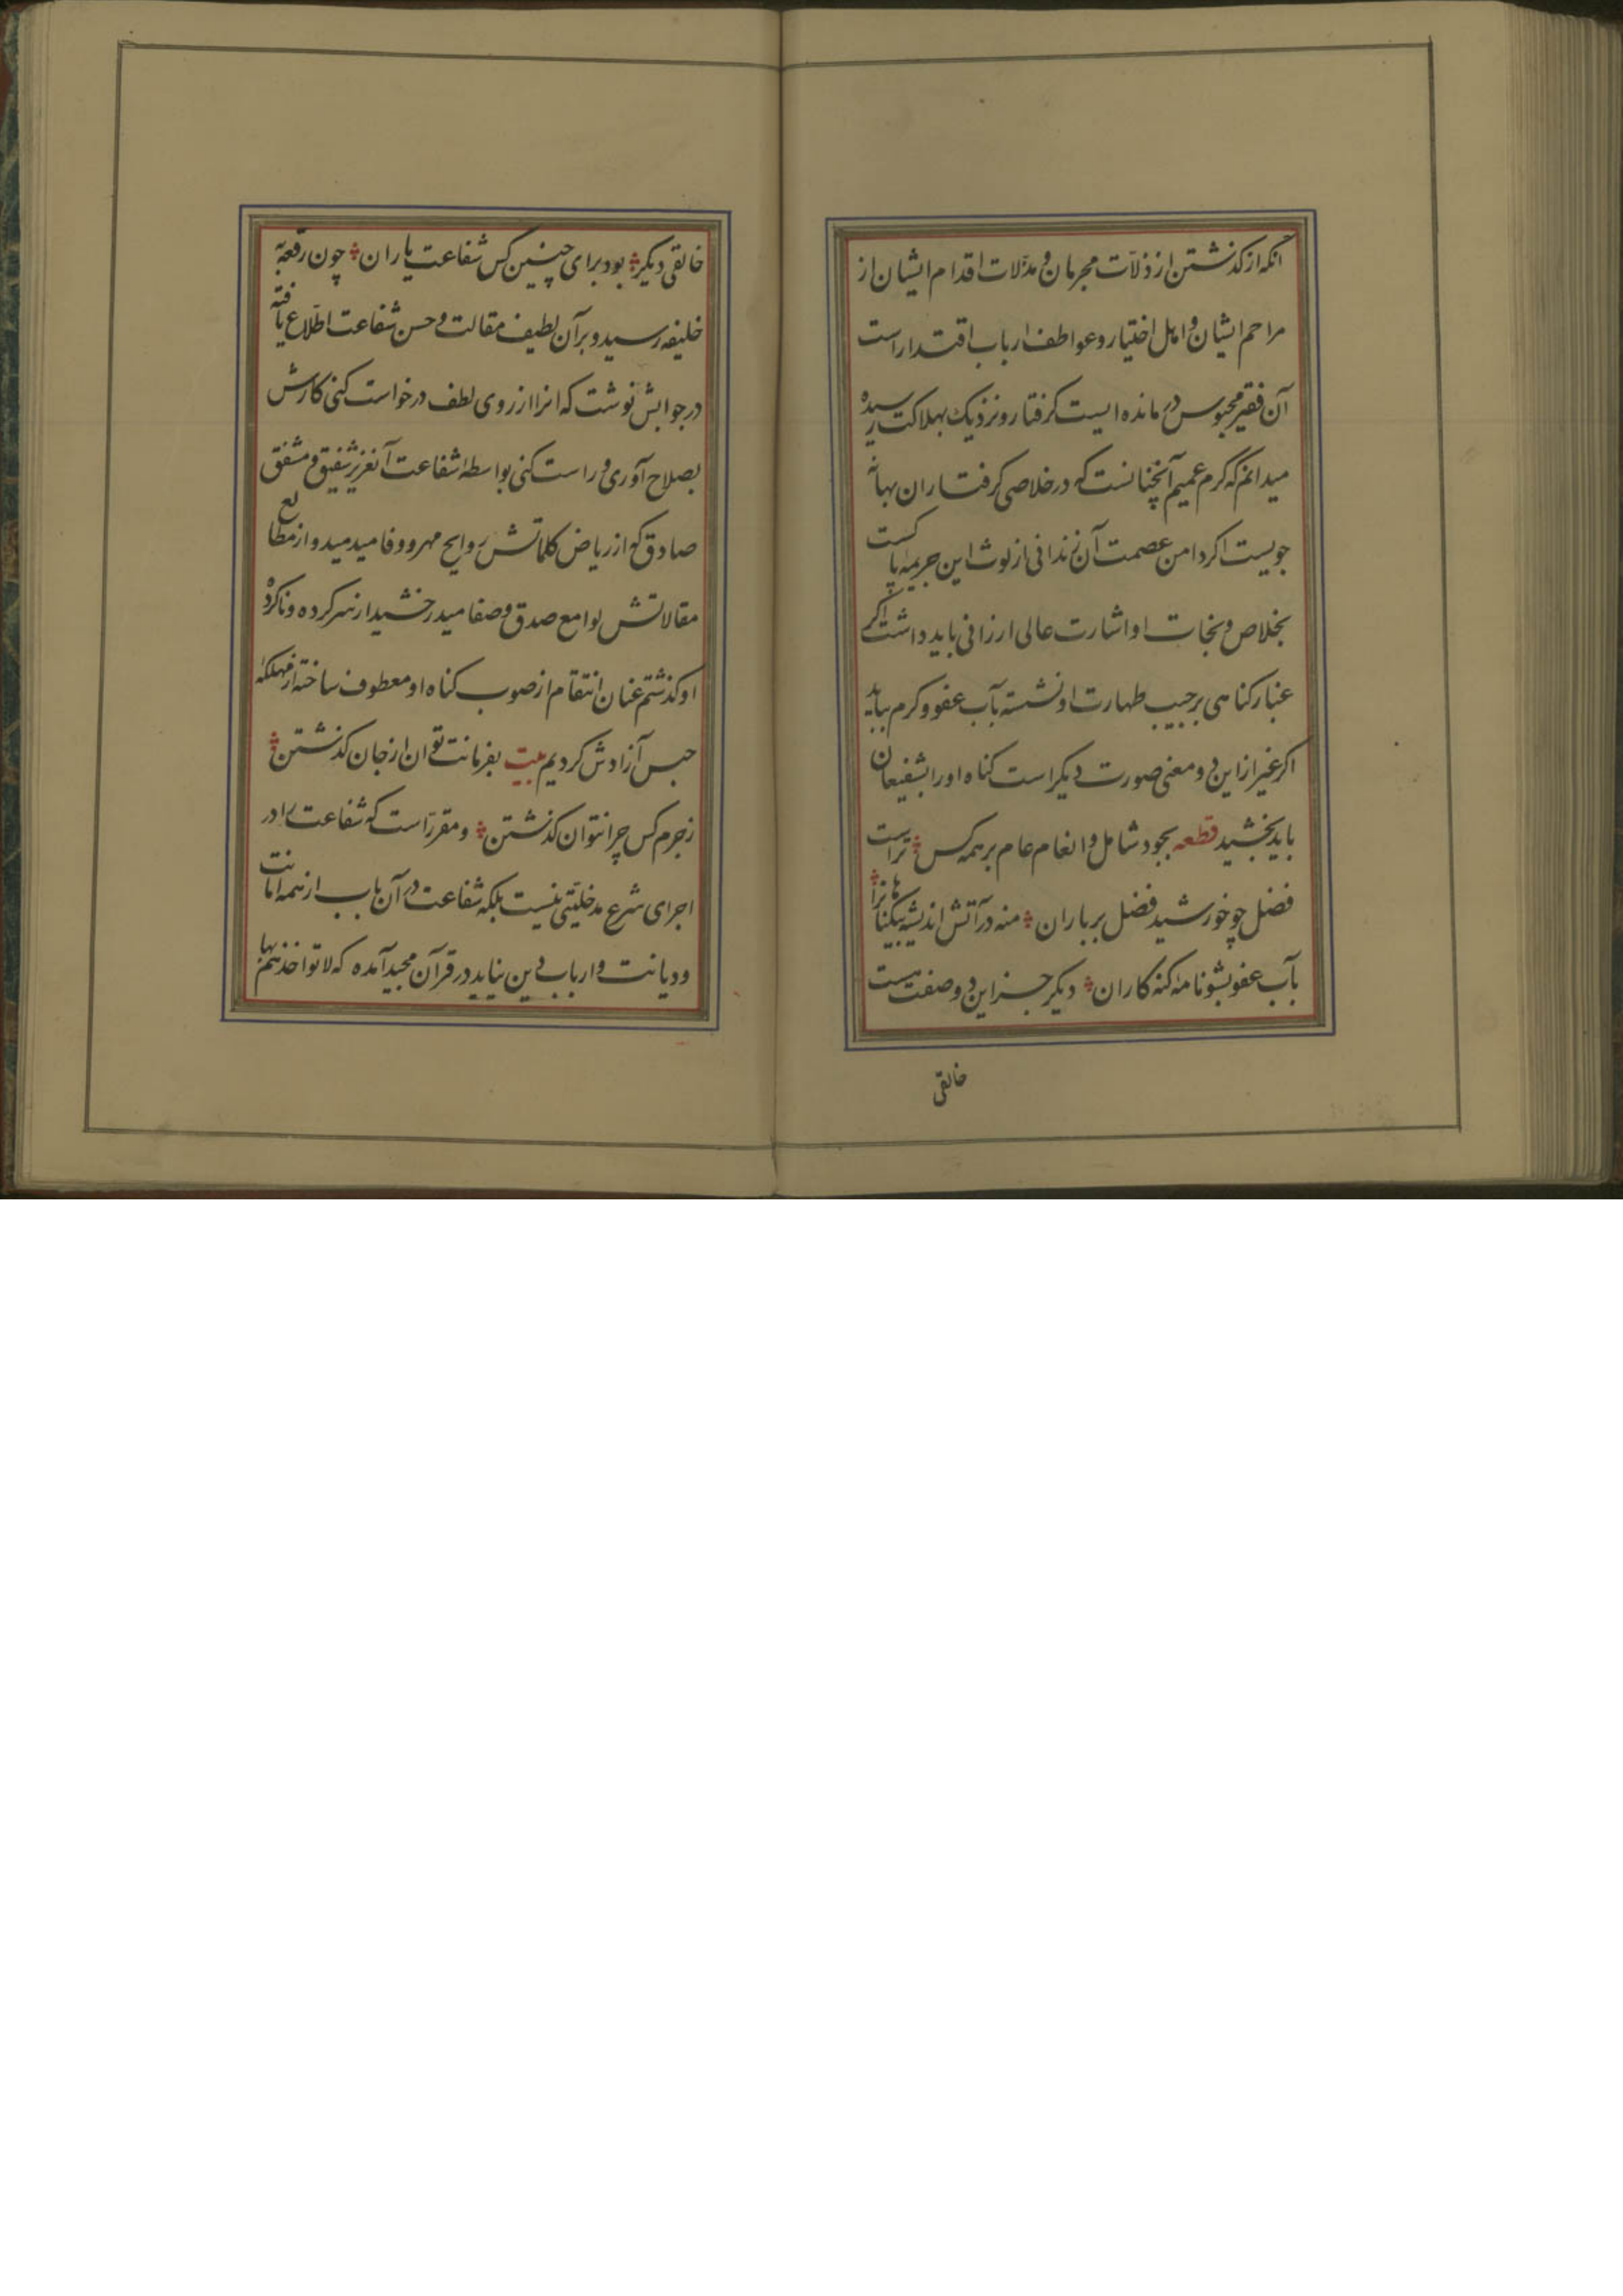 آنکه از کذشتن از ذلات مجرمان و مذلات اقدام ایشان از
مراحم ایشان و اهل اختیار و عواطف ارباب اقتدار است
آن فقیر محبوس در مانده ایست کرفتار و نزدیک بهلاکت رسیده
میدانم که کرم عمیم آنچنانست که در خلاصی کرفتاران بهانه
جویست اکر دامن عصمت آن زندانی از لوث این جریمه پاکست
بخلاص و نجات او اشارت عالی ارزانی باید داشت اکر
غبار کناهی بر جیب طهارت او نشسته بآب عفو و کرم بیاید
اکر غیر از این دو معنی صورت دیکر است کناه او را بشفیعان
باید بخشید قطعه بجود شامل و انعام عام بر همه کس تراست
فضل چو خورشید فضل بر باران منه در آتش اندیشه بیکناهانرا
بآب عفو بشو نامه کنه کاران دیکر جز این دو صفت هست
خالقی
خالقی دیکر بود برای چنین کس شفاعت یاران چون رقعه به
خلیفه رسید و بر آن لطیف مقالت و حسن شفاعت اطلاع یافته
در جوابش نوشت که انرا از روی لطف درخواست کنی کارش
بصلاح آوری و راست کنی بواسطه شفاعت آنعزیز شفیق و مشفق
صادق که از ریاض کلماتش روایح مهر و وفا میدمید و از مطالع
مقالاتش لوامع صدق و صفا میدرخشید از سر کرده و ناکرده
او کذشتم عنان انتقام از صوب کناه او معطوف ساخته از مهلکه
حبس آزادش کردیم بیت بفرمانت توان از جان کذشتن
ز جرم کس چرا نتوان کذشتن و مقرر است که شفاعت را در
اجرای شرع مدخلیتی نیست بلکه شفاعت در آن باب از همه امانت
و دیانت و ارباب دین نیاید در قرآن مجید آمده که لا تواخذهم بها